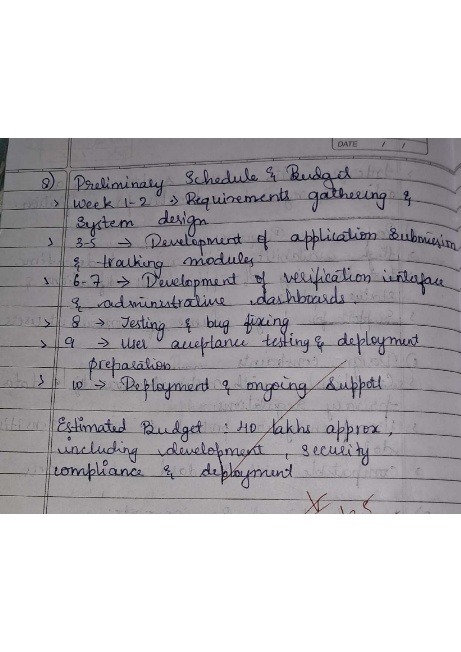 DATE / /
8) Preliminary Schedule & Budget
> Week 1-2 → Requirements gathering &
System design
> 3-5 → Development of application submission
& tracking modules
> 6-7 → Development of verification interface
& administrative dashboards.
> 8 Testing & bug fixing
> 9 → User acceptance testing & deployment
preparation
> 10 → Deployment & ongoing Support
Estimated Budget : 40 lakhs approx,
including development, security
compliance & deployment